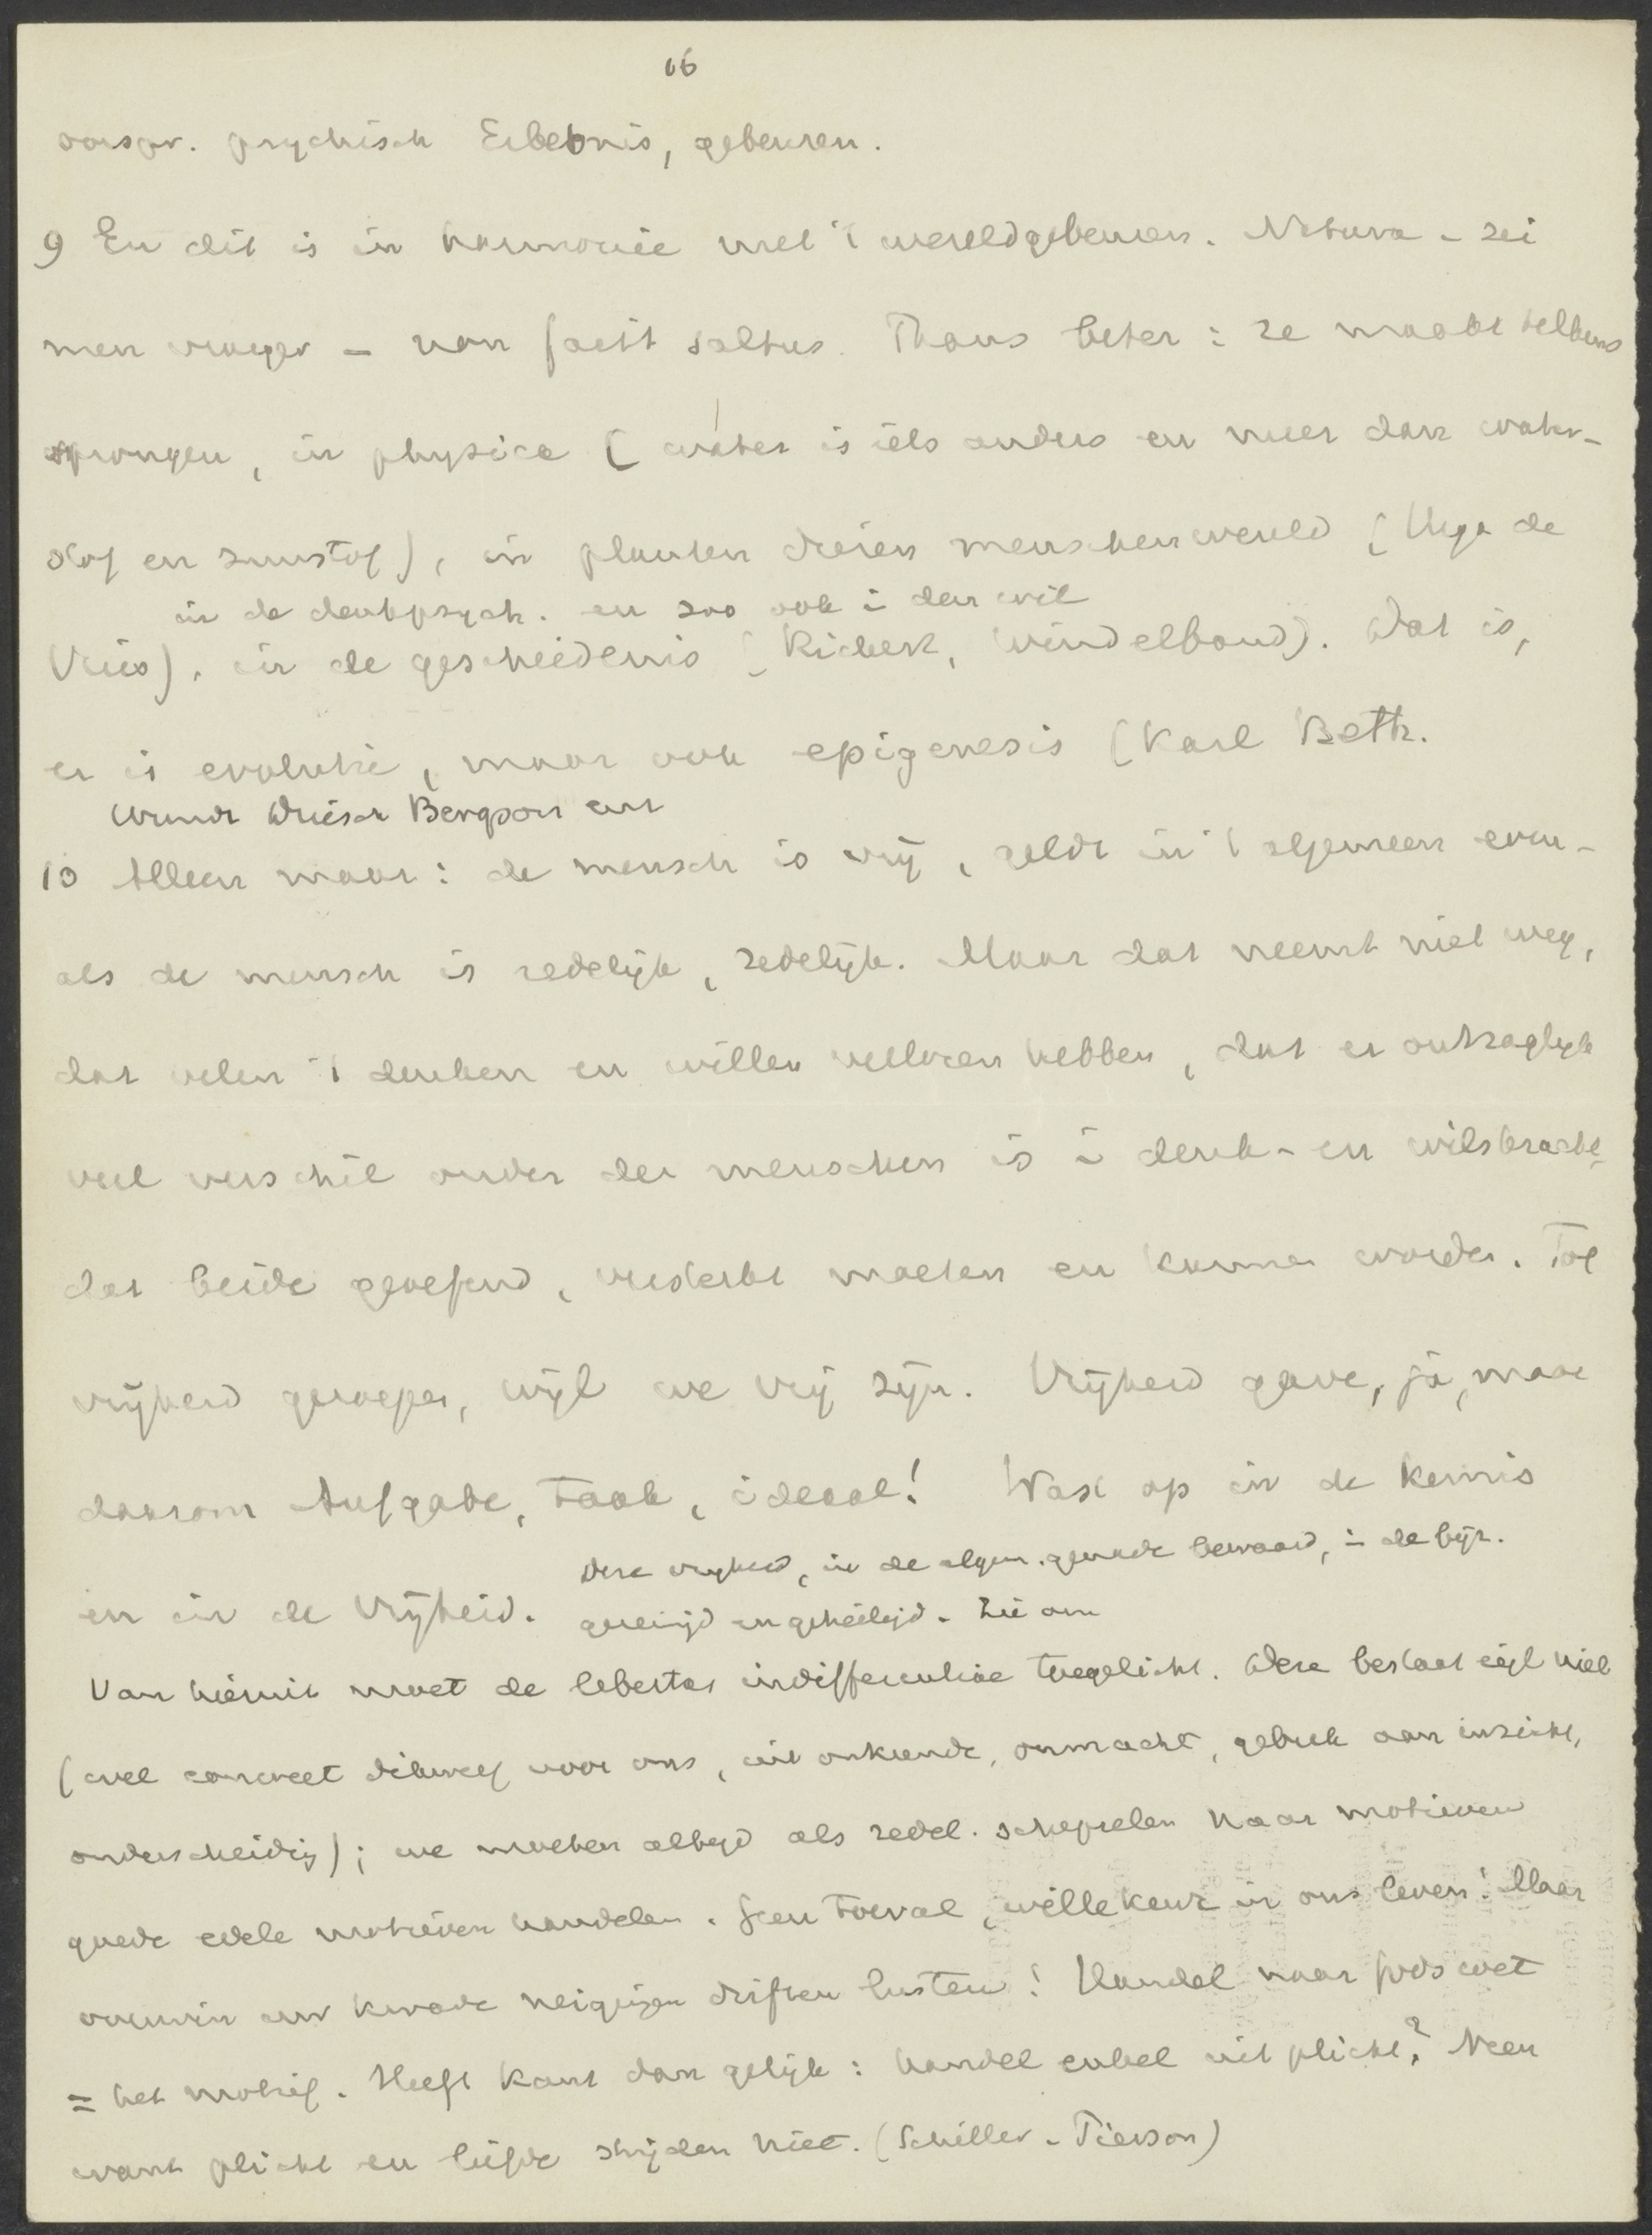 16
oorspr. psychisch Erlebnis, gebeuren.
9 En dit is in harmonie met 't wereldgebeuren. Natura - zei
men vroeger - non facit saltus. Thans beter: ze maakt telkens
sprongen, in physica (water is iets anders en meer dan water-
stof en zuurstof), in planten dieren menschenwereld (Hugo de
in de denkpsych. en zoo ook i den wil
Vries), in de geschiedenis (Rickert, Windelband). Dat is,
er is evolutie, maar ook epigenesis (Karl Beth.
Wundt Driesch Bergson enz
10 Alleen maar: de mensch is vrij, geldt in 't algemeen even-
als de mensch is redelijk, zedelijk. Maar dat neemt niet weg,
dat velen 't denken en willen verloren hebben, dat er ontzaglijk
veel verschil onder de menschen is i denk- en wilskracht,
dat beide geoefend, versterkt moeten en kunnen worden. Tot
vrijheid geroepen, wijl we vrij zijn. Vrijheid gave, ja, maar
daarom Aufgabe, taak, ideaal! Wast op in de kennis
Deze vrijheid, in de algem. genade bewaard, i de bijz.
en in de Vrijheid. gereinigd en geheiligd. Zie om
Van hieruit moet de libertas indifferentiae toegelicht. Deze bestaat eigl niet
(wel concreet dikwerf voor ons, uit onkunde, onmacht, gebrek aan inzicht,
onderscheiding); we moeten altijd als redel. schepselen naar motieven
goede edele motieven handelen. Geen toeval, willekeur in ons leven! Maar
overwin uw kwade neigingen driften lusten! Handel naar Gods wet
= het motief. Heeft Kant dan gelijk: handel enkel uit plicht? Neen
want plicht en liefde strijden niet. (Schiller - Pierson)